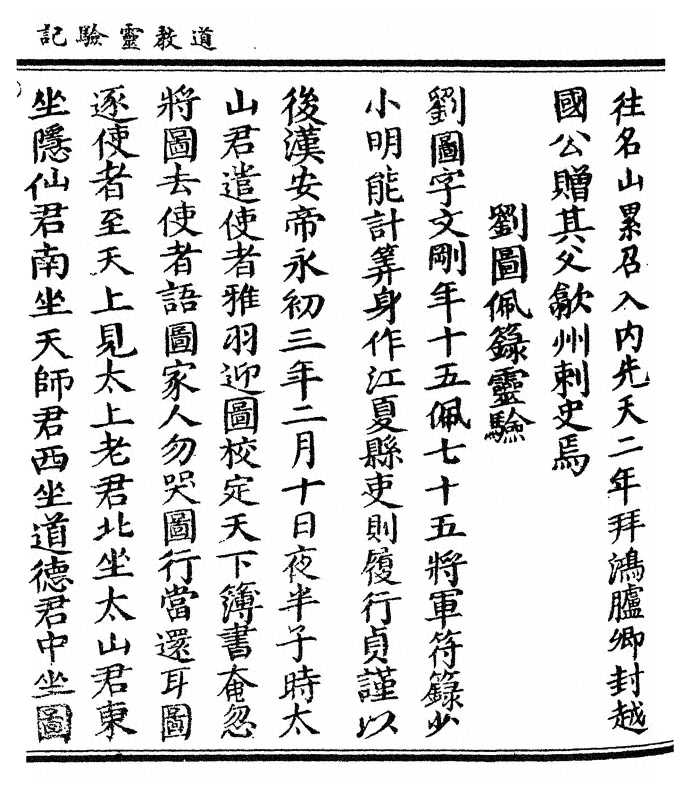 道教靈驗記
往名山累召入內先天二年拜鴻臚卿封越
國公贈其父歙州刺史焉
劉圖佩籙靈驗
劉圖字文剛年十五佩七十五將軍符籙少
小明能計筭身作江夏縣吏則履行貞謹以
後漢安帝永初三年二月十日夜半子時太
山君遣使者雅羽迎圖校定天下簿書奄忽
將圖去使者語圖家人勿哭圖行當還耳圖
逐使者至天上見太上老君北坐太山君東
坐隱仙君南坐天師君西坐道德君中坐圖